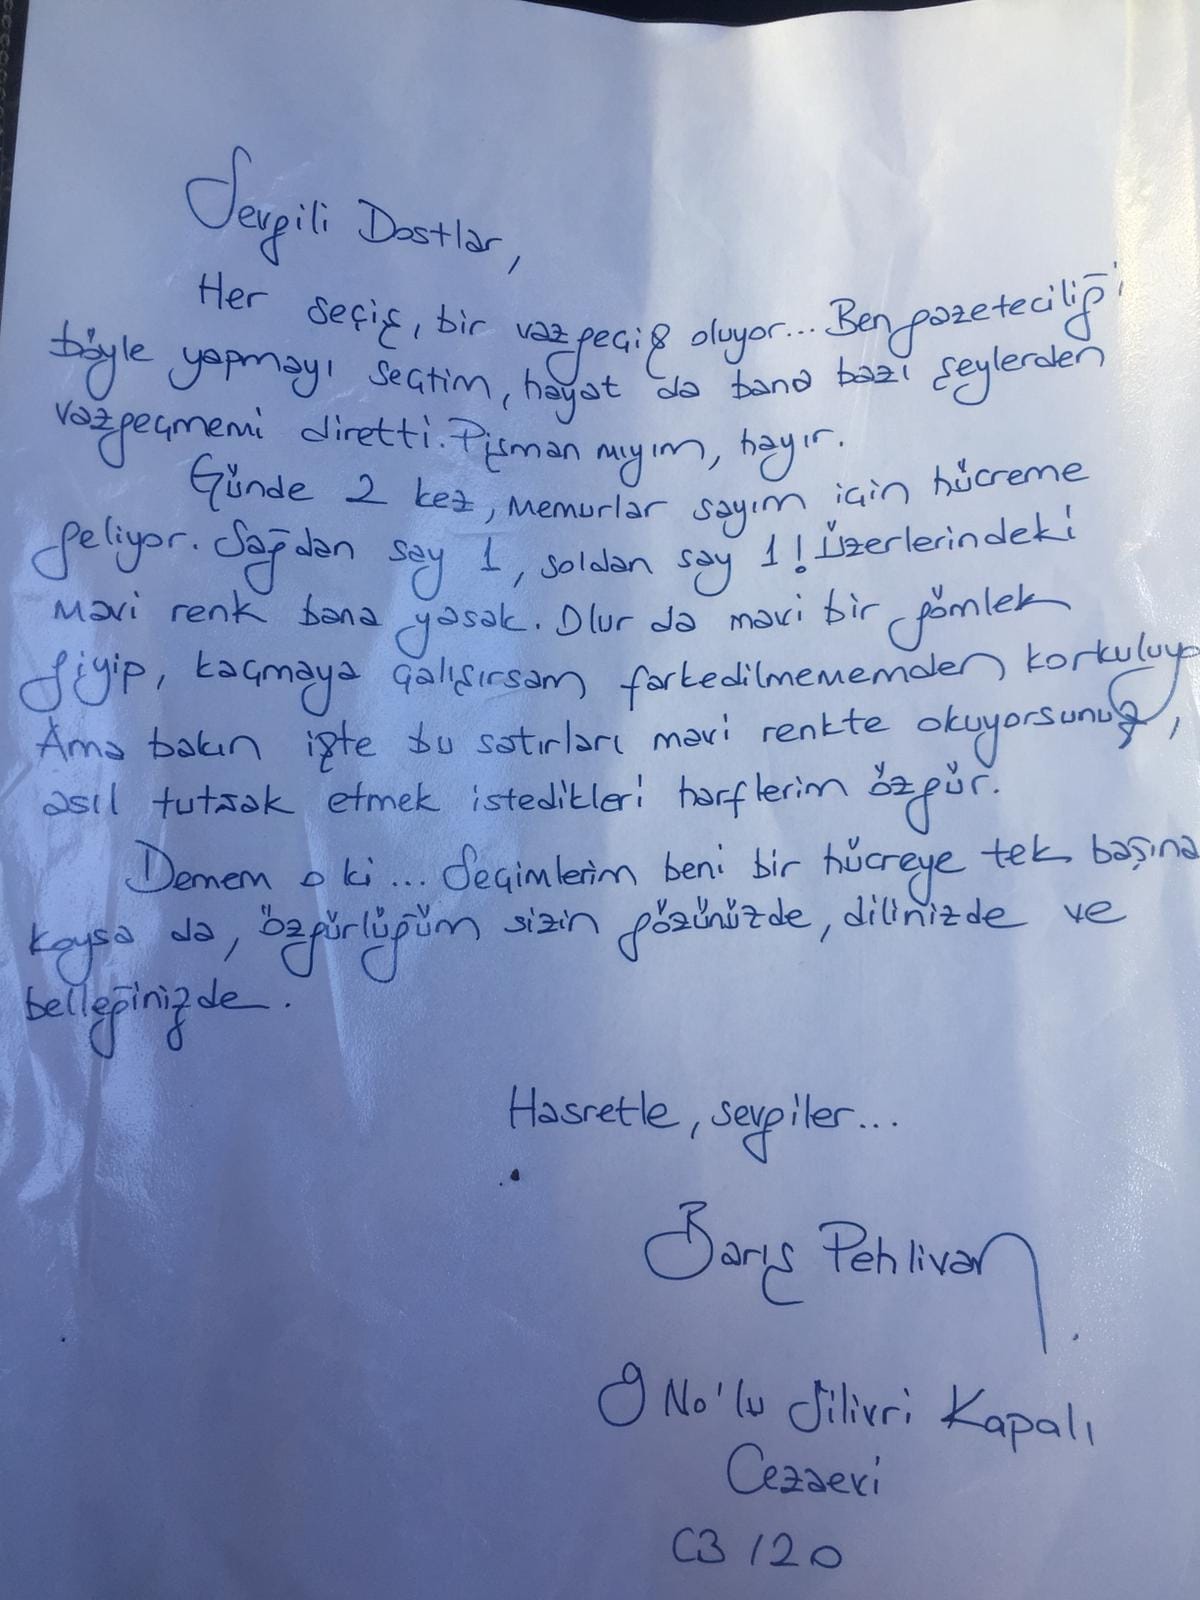 Sevgili Dostlar,
Her seçiş, bir vazgeçiş oluyor... Ben gazeteciliği
böyle yapmayı seçtim, hayat da bana bazı şeylerden
vazgeçmemi diretti. Pişman mıyım, hayır.
Günde 2 kez, memurlar sayım için hücreme
geliyor. Sağdan say 1, soldan say 1! Üzerlerindeki
mavi renk bana yasak. Olur da mavi bir gömlek
giyip, kaçmaya çalışırsam farkedilmememden korkuluyo
Ama bakın işte bu satırları mavi renkte okuyorsunuz,
asıl tutsak etmek istedikleri harflerim özgür.
Demem o ki... Seçimlerim beni bir hücreye tek başına
koysa da, özgürlüğüm sizin gözünüzde, dilinizde ve
belleğinizde.
Hasretle, sevgiler...
Barış Pehlivan
9 No'lu Silivri Kapalı
Cezaevi
C3/20